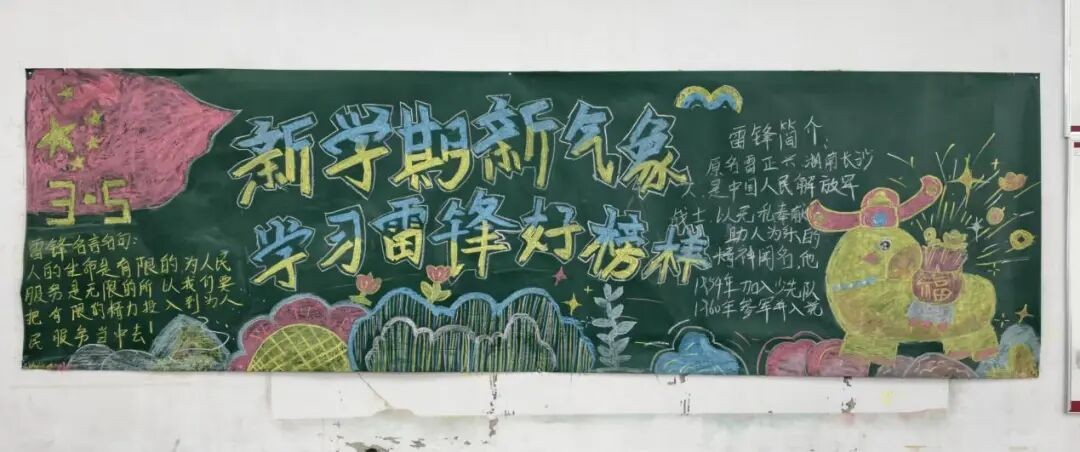 新学期新气象
学习雷锋好榜样
3·5
雷锋名言名句:
人的生命是有限的,为人民
服务是无限的所以我们要
把有限的精力投入到为人
民服务当中去!
雷锋简介:
原名雷正兴湖南长沙
人是中国人民解放军
战士以无私奉献
助人为乐的
精神闻名,他
年加入少先队
1960年参军并入党
福